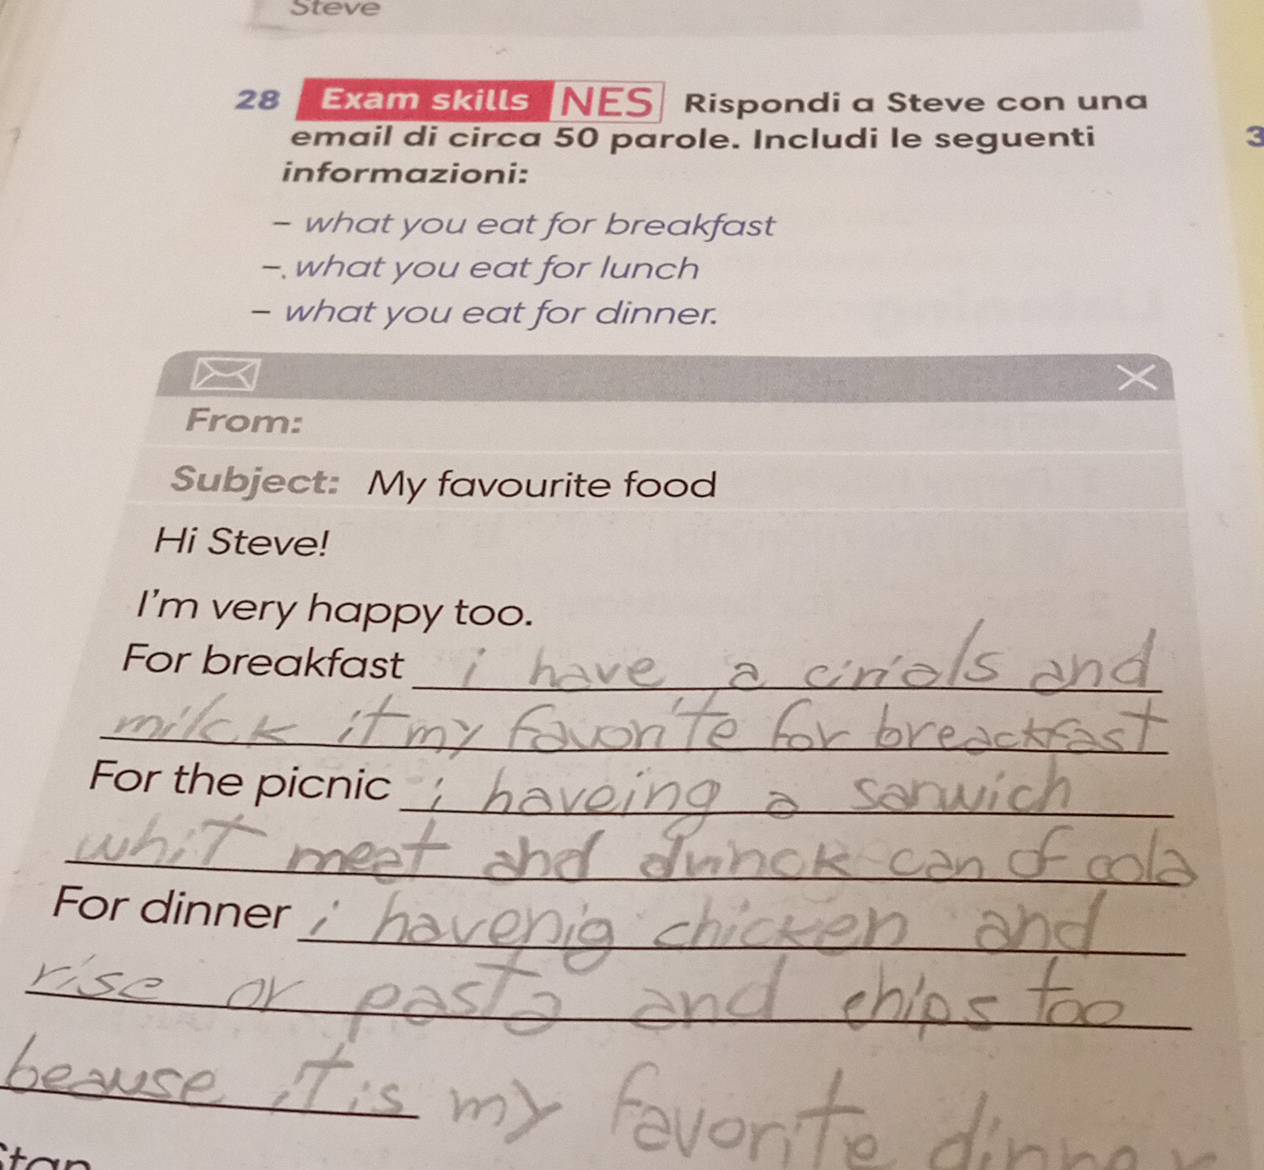 Steve
28 Exam skills NES Rispondi a Steve con una
email di circa 50 parole. Includi le seguenti
informazioni:
3
– what you eat for breakfast
– what you eat for lunch
– what you eat for dinner.
From:
Subject: My favourite food
Hi Steve!
I'm very happy too.
For breakfast i have a cirials and
milck it my favorite for breackfast
For the picnic i haveing a sanwich
whit meet and drinck can of cola
For dinner i havenig chicken and
rise or pasta and chips too
beause it is my favorite dinner
Stan